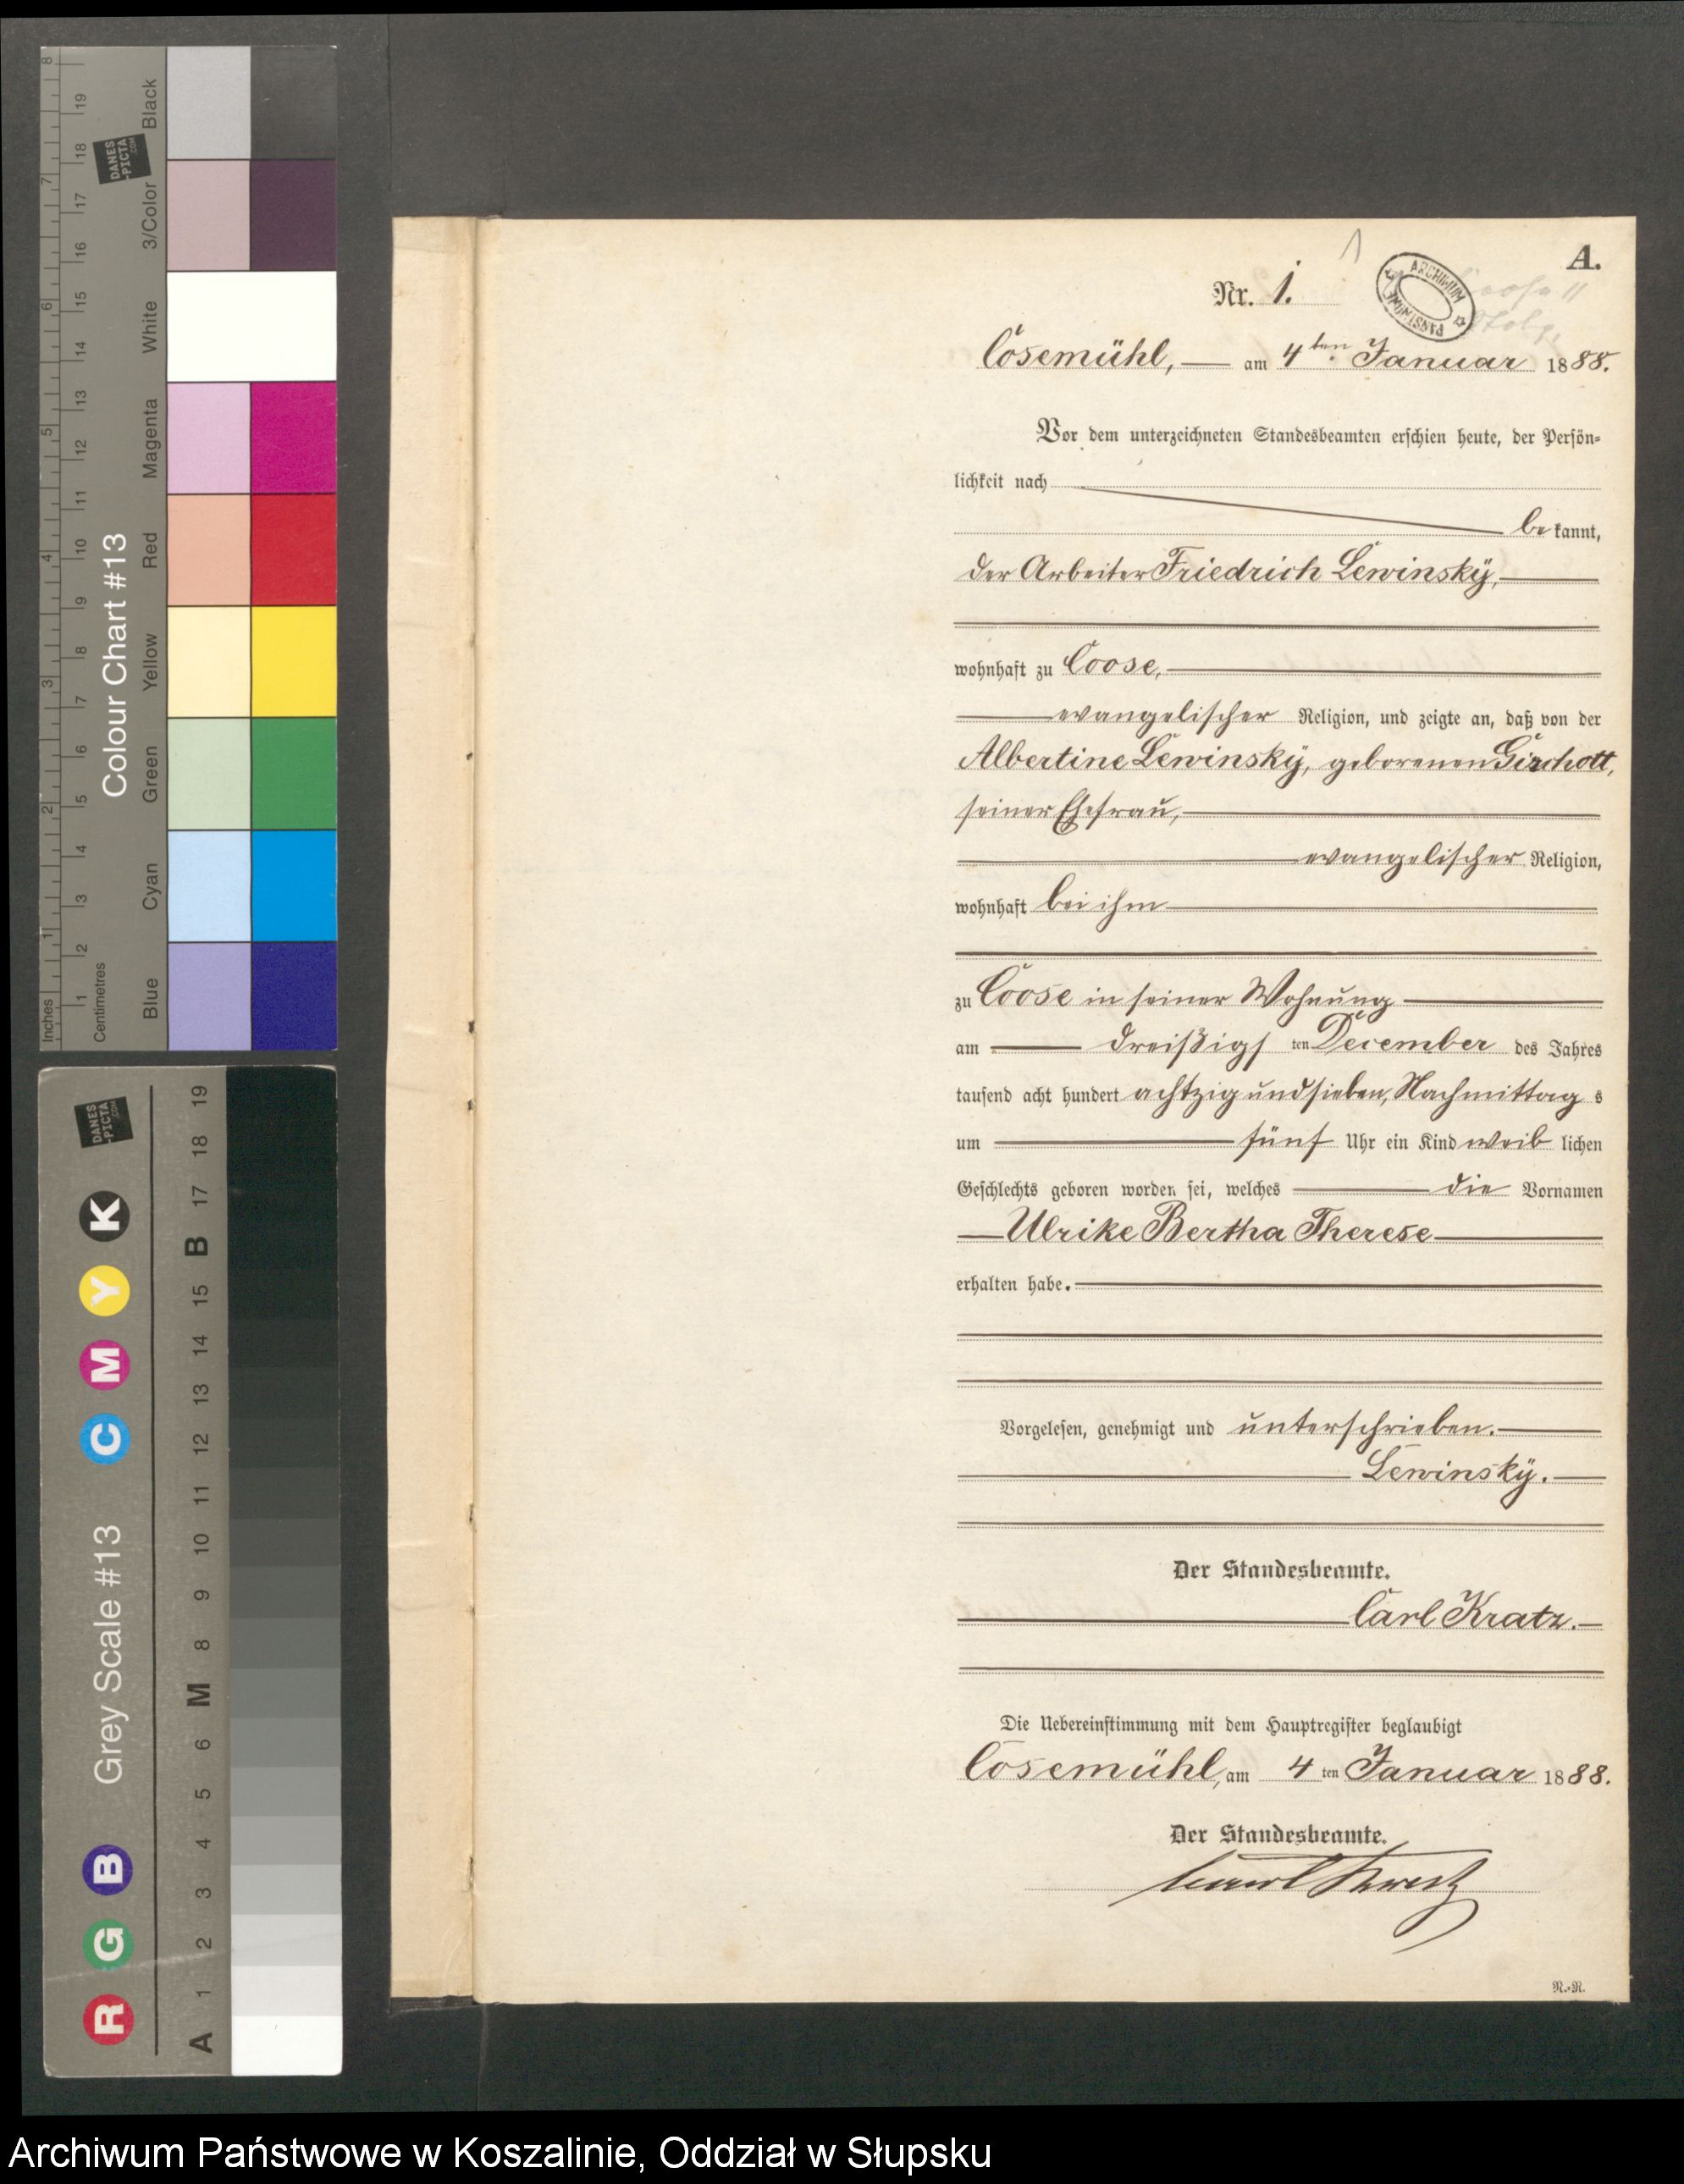 8
7
6
5
4
3
2
1
Inches
19
18
17
16
15
14
13
12
11
10
9
8
7
6
5
4
3
2
1
Centimetres
Colour Chart #13
DANES
-PICTA
.COM
Black
3/Color
White
Magenta
Red
Yellow
Green
Cyan
Blue
DANES
-PICTA
.COM
Grey Scale #13
R G B C M Y K
A 1 2 3 4 5 6 M 8 9 10 11 12 13 14 15 B 17 18 19
1
A.
Nr. 1.
ARCHIWUM
PAŃSTWOWE
Cosemühl, am 4ten Januar 1888.
Vor dem unterzeichneten Standesbeamten erschien heute, der Persön-
lichkeit nach
be kannt,
der Arbeiter Friedrich Lewinsky,
wohnhaft zu Coose,
evangelischer Religion, und zeigte an, daß von der
Albertine Lewinsky, geborenen Girchott,
seiner Ehefrau,
evangelischer Religion,
wohnhaft bei ihm
zu Coose in seiner Wohnung
am dreißigs ten December des Jahres
tausend acht hundert achtzig und sieben, Nachmittag s
um fünf Uhr ein Kind weib lichen
Geschlechts geboren worden sei, welches die Vornamen
Ulrike Bertha Therese
erhalten habe.
Vorgelesen, genehmigt und unterschrieben.
Lewinsky.
Der Standesbeamte.
Carl Kratz.
Die Uebereinstimmung mit dem Hauptregister beglaubigt
Cosemühl, am 4 ten Januar 1888.
Der Standesbeamte.
Carl Kratz
N.-N.
Archiwum Państwowe w Koszalinie, Oddział w Słupsku